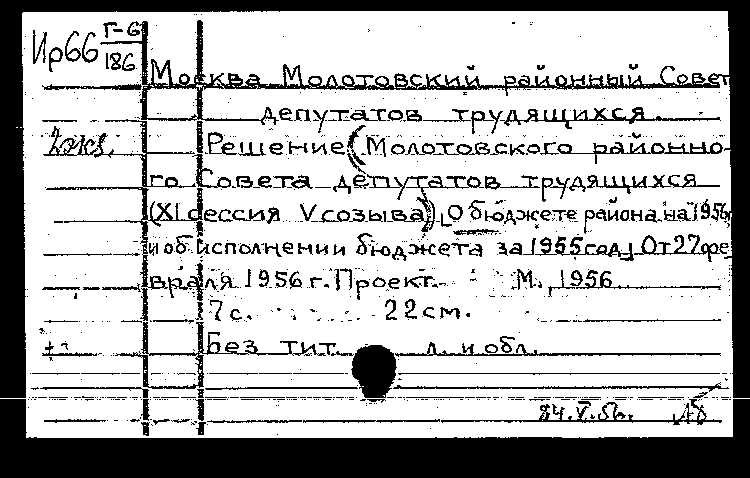 Ир66 Г-6/186
Москва Молотовский районный Совет
депутатов трудящихся.
2 экз. Решение (Молотовского районно-
го Совета депутатов трудящихся
(XI сессия V созыва)) [О бюджете района на 1956
и об исполнении бюджета за 1955 год] От 27 фе
враля 1956 г. Проект. М., 1956
7 с. 22 см.
Без тит. л. и обл.
24.V.56.